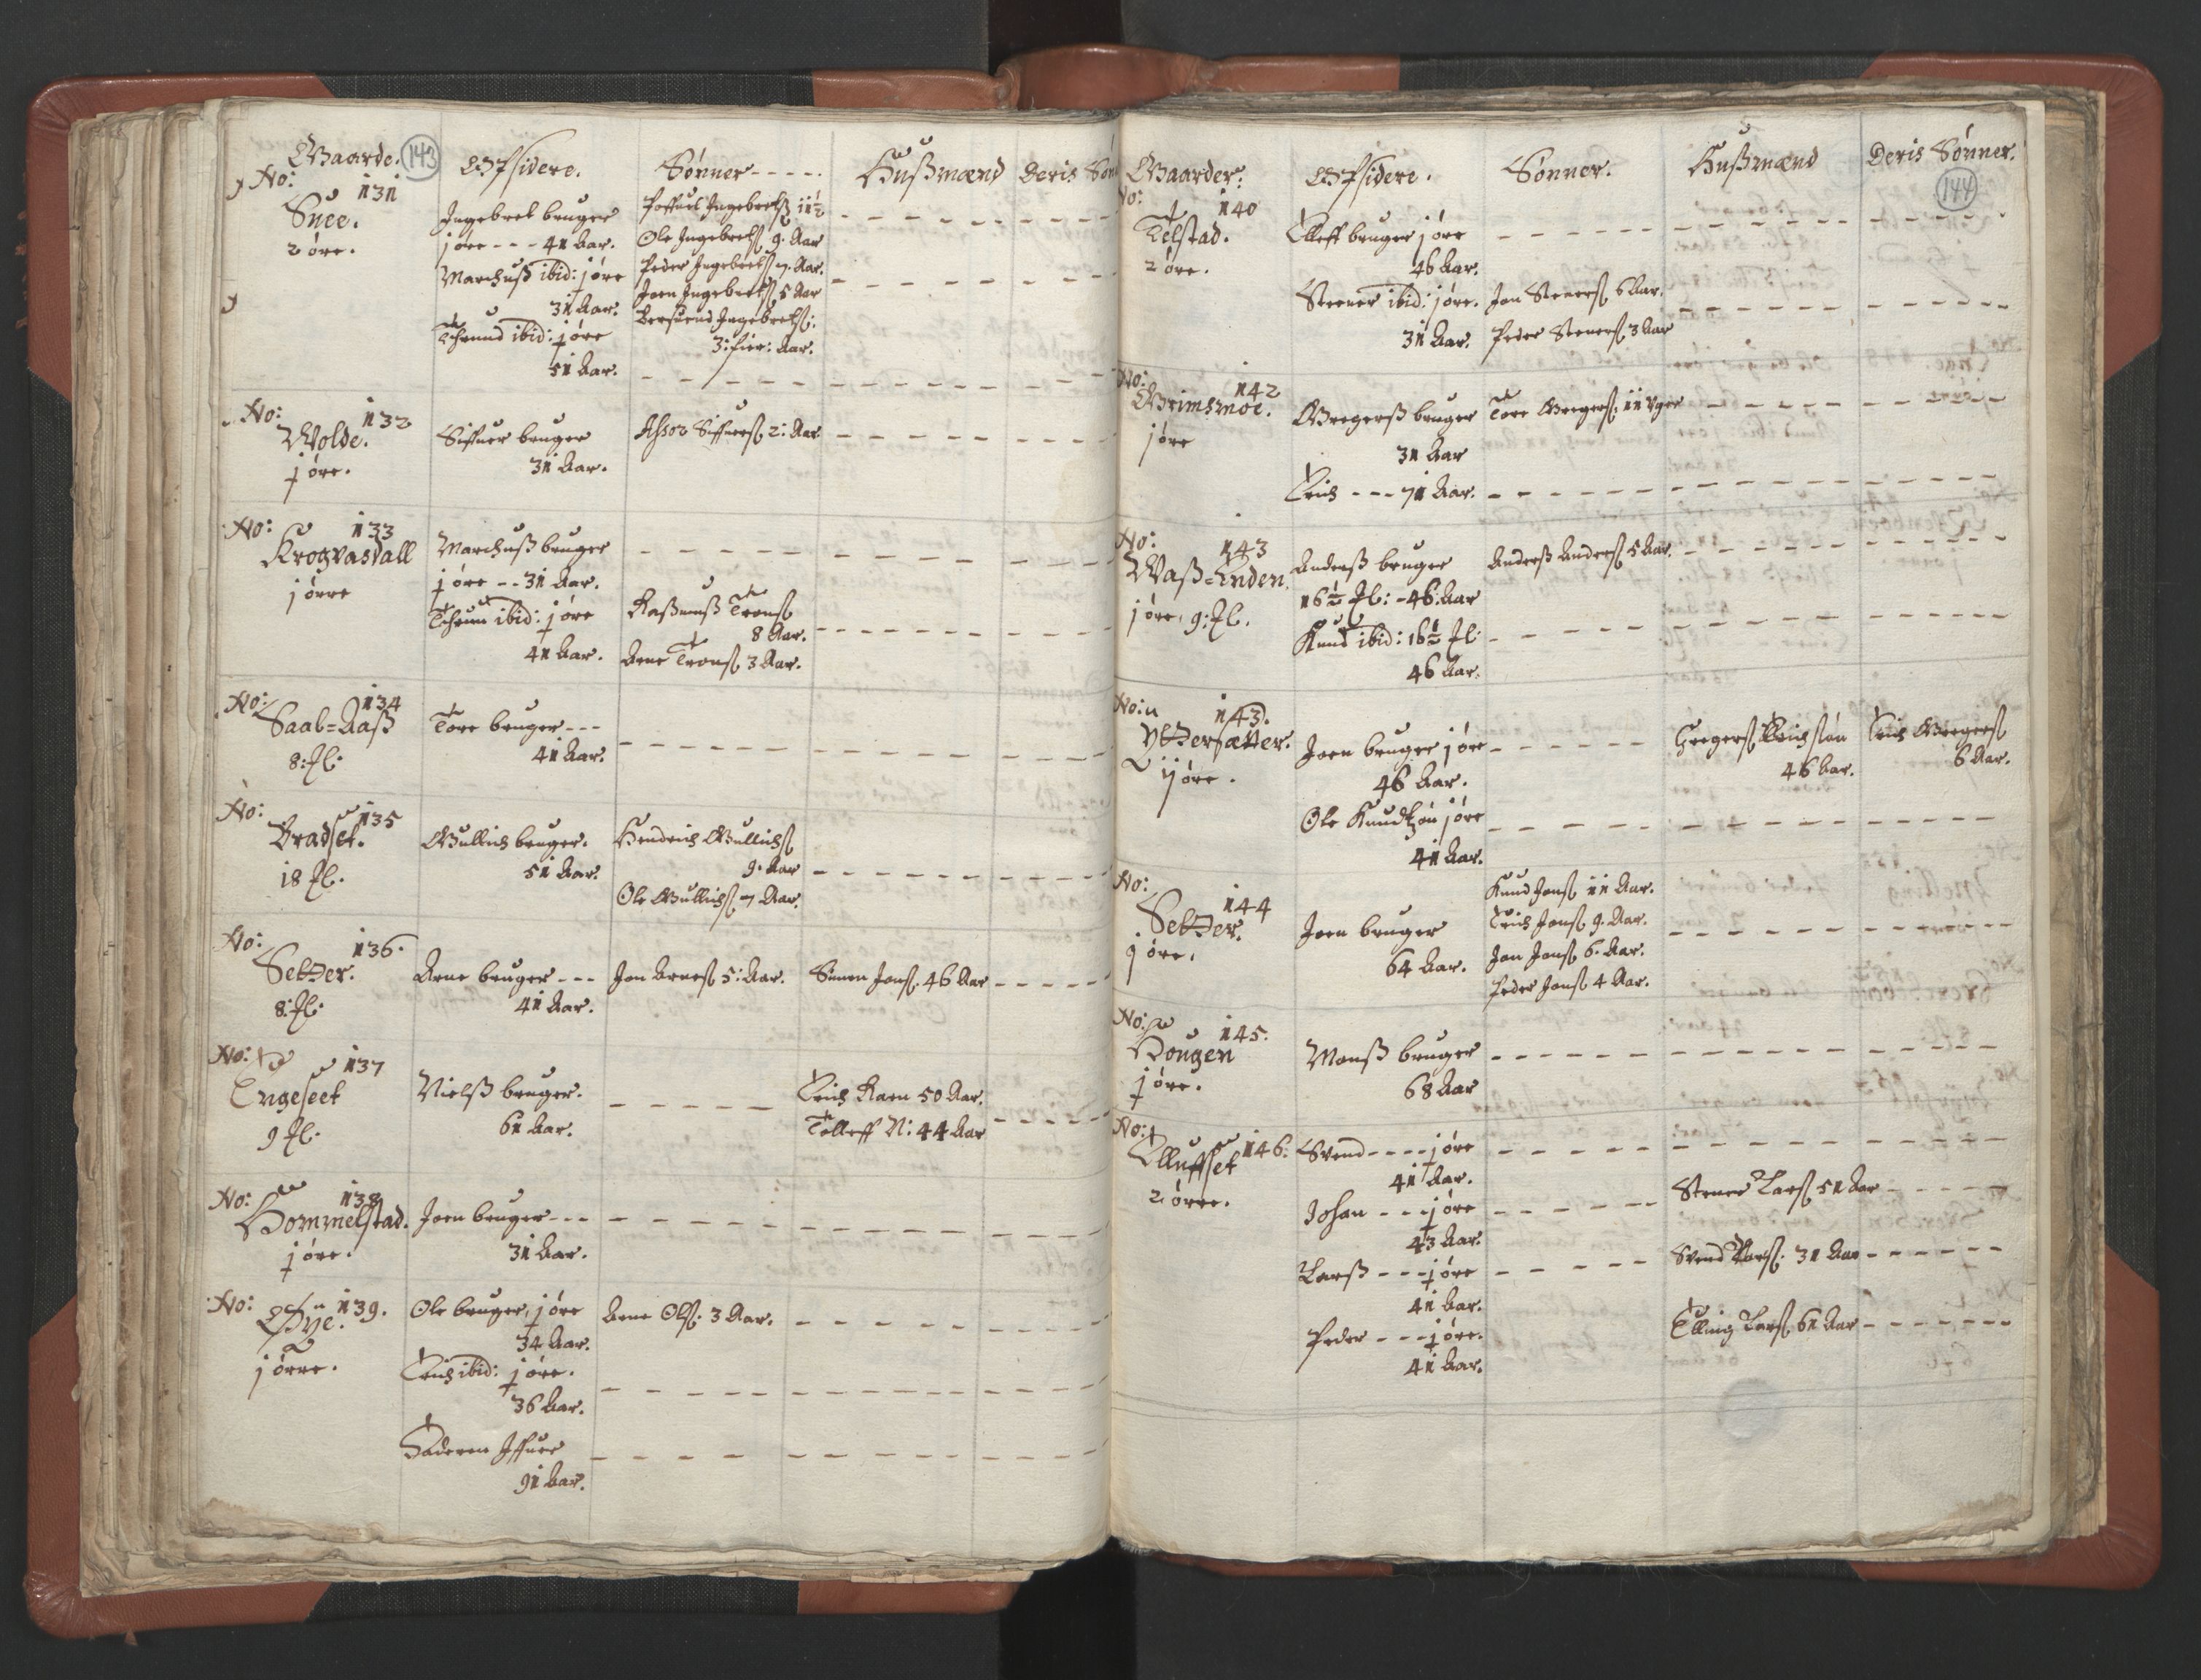 Gaarde. 143 Opsidere. Sønner Hußmænd Deris Søn
No: 131
Snee.
2 øre.
Ingebret bruger
j øre - - - 41 Aar.
Marchuß ibid: j øre
31 Aar.
Thrund ibid: j øre
51 Aar.
Poffuel Ingebretß 11½
Ole Ingebretß 9. Aar
Peder Ingebretß 7. Aar.
Joen Ingebretß 5 Aar
Ingebretß:
3: fier: Aar.
No: 132
Wolde.
j øre.
Siffuer bruger
31 Aar.
Assor Siffuerß 2: Aar
No: 133
Krogvasdall
j ørre
Marchuß bruger
j øre - - 31 Aar.
Thrun ibid: j øre
41 Aar.
Raßmuß Tronß
8 Aar.
Arne Tronß 3 Aar.
No: 134
Saal=Aaß
8: Fl.
Tore bruger - - -
41 Aar.
No: 135
Bradset.
18 Fl.
Gullich bruger.
51 Aar.
Hendrich Gullichß
9. Aar
Ole Gullichß 7 Aar.
No: 136.
Setter.
8: Fl.
Arne bruger - - -
41 Aar.
Jon Arneß 5: Aar.
Simen Jonß. 46 Aar
No: 137
Engeseet
9 Fl.
Nielß bruger.
61 Aar.
Erich Raen 50 Aar.
Tolleff N: 44 Aar
No: 138
Hommelstad.
j øre.
Joen bruger - - -
31 Aar.
No: 139.
Øye.
j ørre.
Ole bruger, j øre
34 Aar.
Erich ibid: j øre.
36 Aar.
Faderen Iffuer
91 Aar.
Arne Olß: 3 Aar.
Gaarder: Opsidere. Sønner. Hußmænd Deris Sønner.
144
No: 140
Telstad.
2 øre.
Elleff bruger j øre
46 Aar.
Steener ibid: j øre.
31 Aar.
Jon Stenerß 6 Aar.
Peder Stenerß 3 Aar
No: 142
Grimsmoe.
j øre
Gregerß bruger
31 Aar
Erich - - - 71 Aar.
Tore Gregerß: 11 Uger
No: 143
Waß=Enden
j øre, 9: Fl.
Anderß bruger
16½ Fl: - 46. Aar
Knud ibid: 16½ Fl:
46 Aar.
Anderß Anderß 5 Aar.
No: 143.
Yttersætter.
ij øre.
Joen bruger j øre
46 Aar.
Ole Knudtzøn j øre
41 Aar.
Gregerß Erichsøn
46 Aar.
Erich Gregerß
6 Aar.
No: 144
Setter.
j øre.
Joen bruger
64 Aar.
Knud Jonß 11 Aar.
Erich Jonß 9. Aar.
Jon Jonß 6. Aar.
Peder Jonß 4 Aar.
No: 145.
Hougen
j øre.
Monß bruger
68 Aar
No: 146.
Ellufset
2 ørre.
Svend - - - - j øre
41 Aar.
Johan - - - j øre
43 Aar.
Larß - - - j øre
41 Aar.
Peder - - - j øre.
41 Aar.
Stener Larß 51 Aar
Svend Larß. 31 Aar
Elling Larß 61 Aar